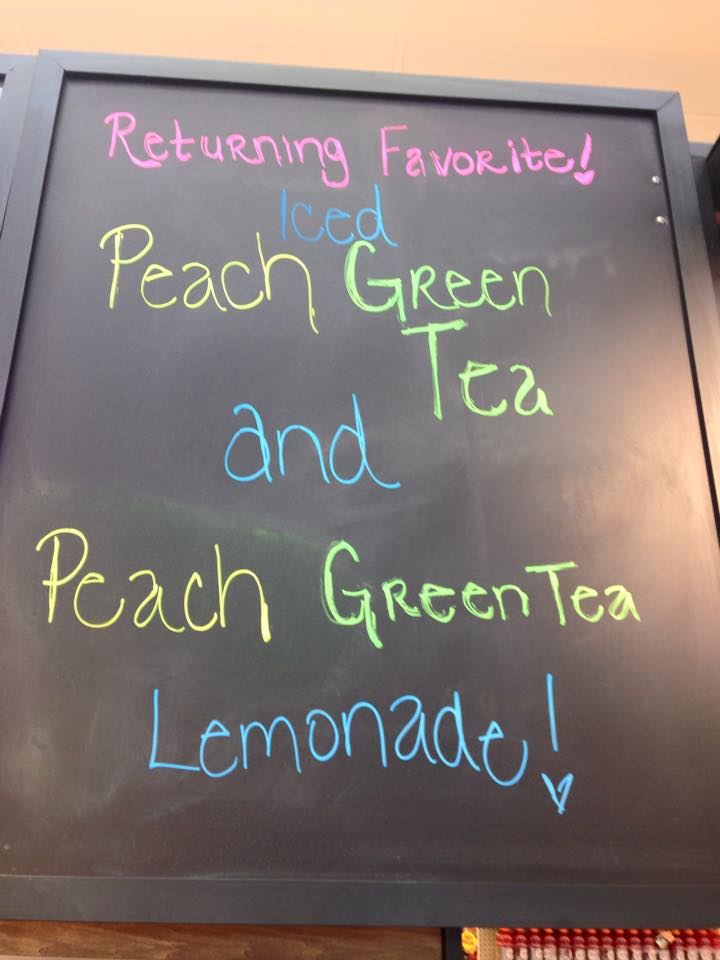 Returning Favorite!
Iced
Peach Green
Tea
and
Peach Green Tea
Lemonade!